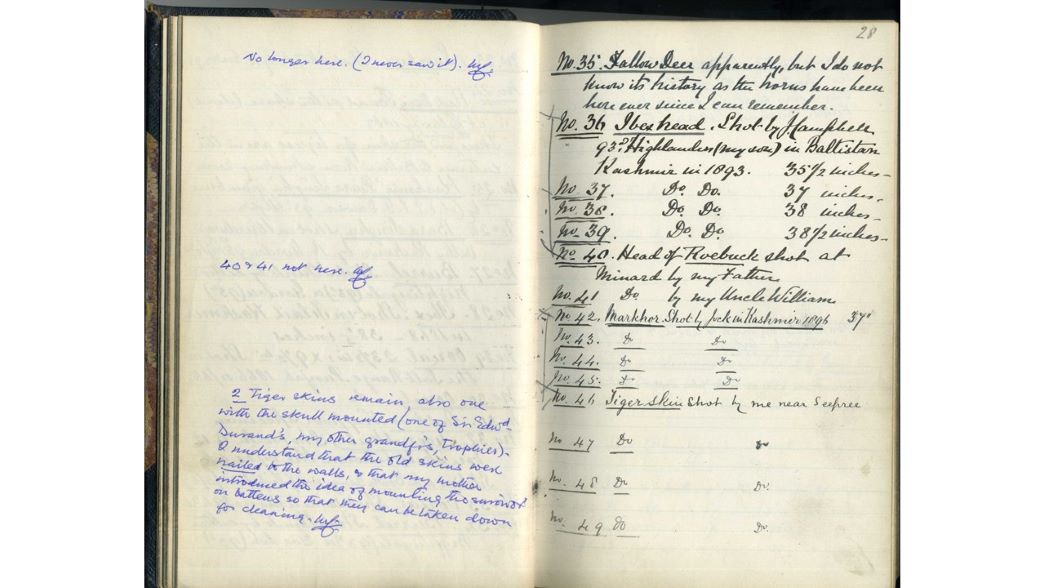 No longer here. (I never saw it).
40 & 41 not here.
2 Tiger skins remain also one
with the skull mounted (one of Sir Edwd
Durand's, my other grandf's, trophies).
I understand that the old skins were
nailed to the walls, & that my mother
introduced the idea of mounting the survivors
on battens so that they can be taken down
for cleaning.
28
No. 35. Fallow Deer apparently, but I do not
know its history as the horns have been
here ever since I can remember.
No. 36 Ibex head. Shot by J. Campbell
93d. Highlanders (my son) in Baltistan
Kashmir in 1893. 35 1/2 inches
No. 37. Do. Do. 37 inches
No. 38. Do. Do. 38 inches
No. 39. Do. Do. 38 1/2 inches
No. 40. Head of Roebuck shot at
Minard by my Father
No. 41 Do. by my Uncle William
No. 42. Markhor Shot by Jock in Kashmir 1896 37"
No. 43. Do Do
No. 44. Do Do
No. 45. Do Do
No. 46 Tiger skin Shot by me near Seepree
No 47 Do Do
No. 48 Do Do.
No. 49 Do Do.